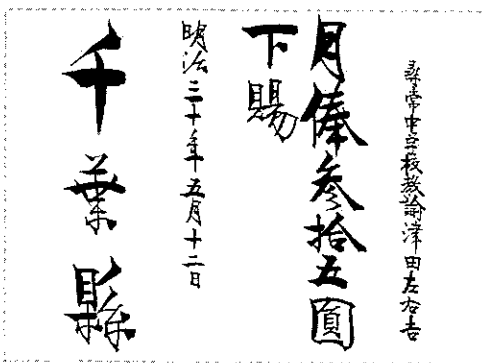 尋常中学校教諭津田左右吉
月俸参拾五圓
下賜
明治三十年五月十二日
千葉縣